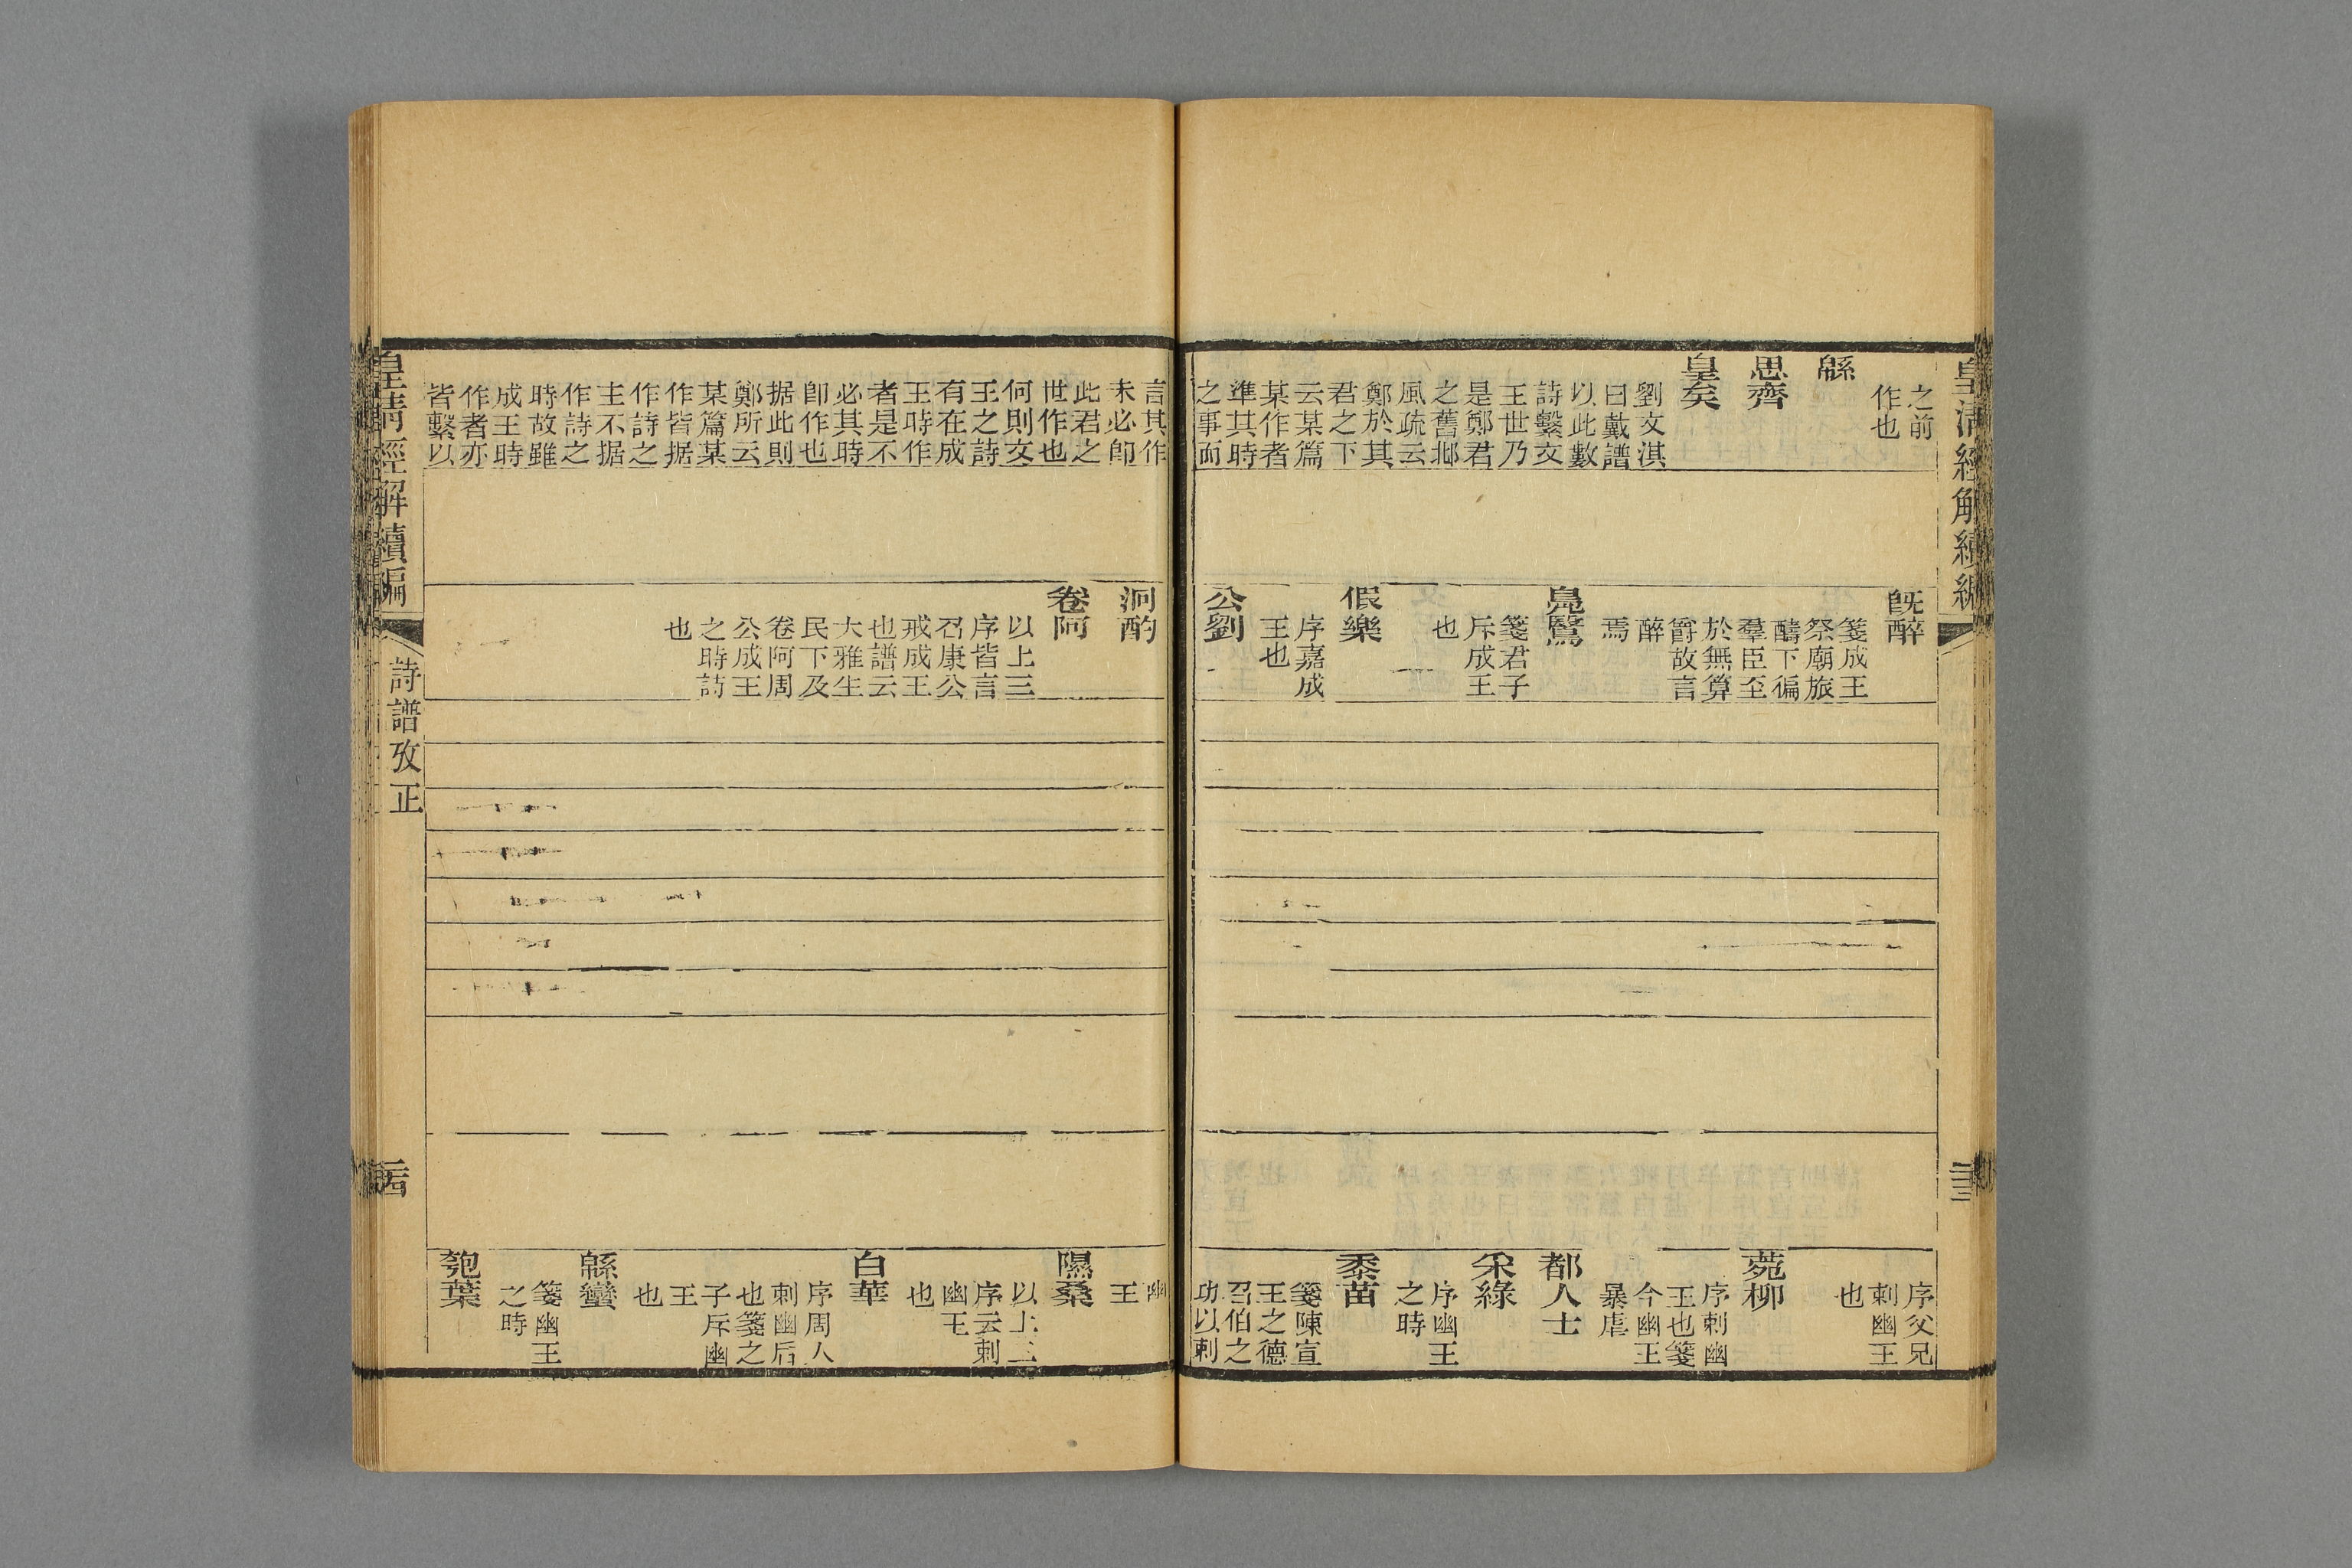 皇清經解續編
之前
作也
緜
思齊
皇矣
劉文淇
曰戴譜
以此數
詩繫文
王世乃
是鄭君
之舊邶
風疏云
鄭於其
君之下
云某篇
某作者
準其時
之事而
既醉
箋成王
祭廟旅
醻下徧
羣臣至
於無算
爵故言
醉
焉
鳧鷖
箋君子
斥成王
也
假樂
序嘉成
王也
公劉
序父兄
刺幽王
也
菀柳
序刺幽
王也箋
今幽王
暴虐
都人士
采綠
序幽王
之時
黍苗
箋陳宣
王之德
召伯之
功以刺
言其作
未必卽
此君之
世作也
何則文
王之詩
有在成
王時作
者是不
必其時
卽作也
据此則
鄭所云
某篇某
作皆据
作詩之
主不据
作詩之
時故雖
成王時
作者亦
皆繫以
泂酌
卷阿
以上三
序皆言
召康公
戒成王
也譜云
大雅生
民下及
卷阿周
公成王
之時詩
也
幽
王
隰桑
以上二
序云刺
幽王
也
白華
序周人
刺幽后
也箋之
子斥幽
王
也
緜蠻
箋幽王
之時
瓠葉
皇清經解續編
詩譜攷正